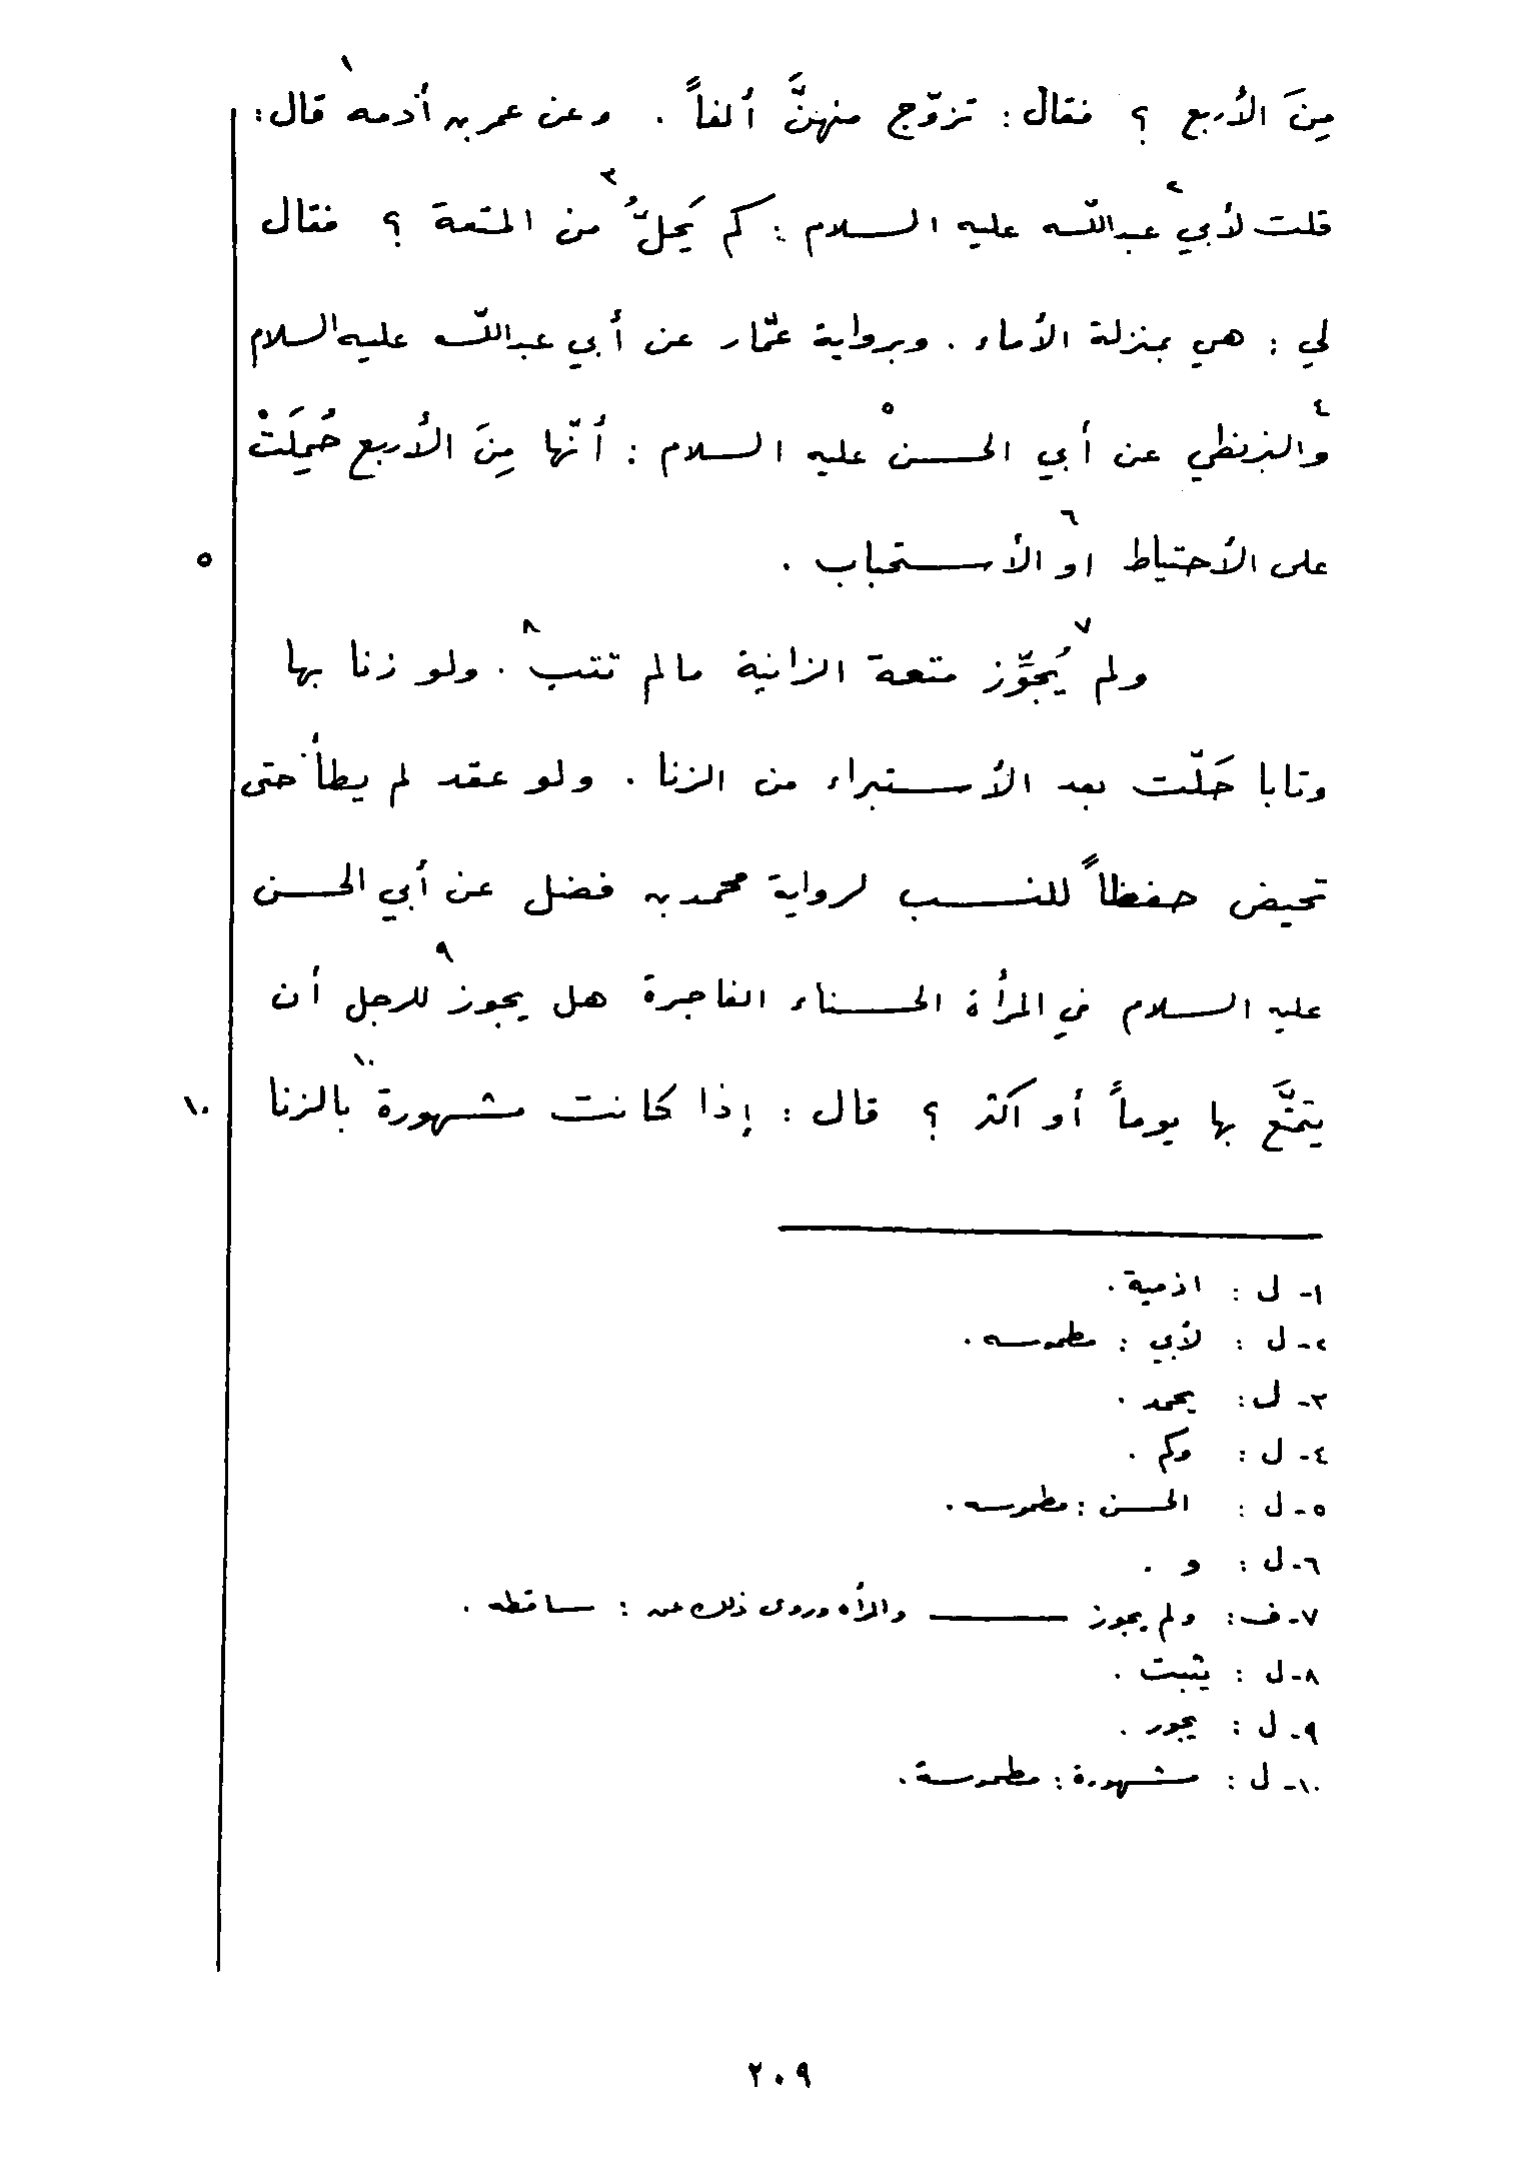 مِنَ الأربع ؟ فقال : تزوّج منهنَّ ألفاً . وعن عمر بن أذمه ١ قال :
قلت لأبي ٢ عبدالله عليه السلام : كم يَحِلُّ ٣ من المتعة ؟ فقال
لي : هي بمنزلة الأماء . وبرواية عمّار عن أبي عبدالله عليه السلام
و٤البزنطي عن أبي الحسن ٥ عليه السلام : أنّها مِنَ الأربع حُمِلَتْ
على الأحتياط او ٦ الأستحباب .
٥
ولم يُجوِّز ٧ متعة الزانية مالم تتب ٨ . ولو زنا بها
وتابا حَلّت بعد الأستبراء من الزنا . ولو عقد لم يطأ حتى
تحيض حفظاً للنسب لرواية محمد بن فضل عن أبي الحسن
عليه السلام في المرأة الحسناء الفاجرة هل يجوز ٩ للرجل أن
يتمتَّع بها يوماً أو اكثر ؟ قال : إذا كانت مشهورة ١٠ بالزنا
١٠
١- ل : اذمية .
٢- ل : لأبي : مطموسه .
٣- ل : يحمد .
٤- ل : وكم .
٥- ل : الحسن : مطموسه .
٦- ل : و .
٧- ف : ولم يجوز ——— والمرأه وروى ذلك عن : ساقطه .
٨- ل : يثبت .
٩- ل : يجور .
١٠- ل : مشهورة : مطموسة .
٢٠٩